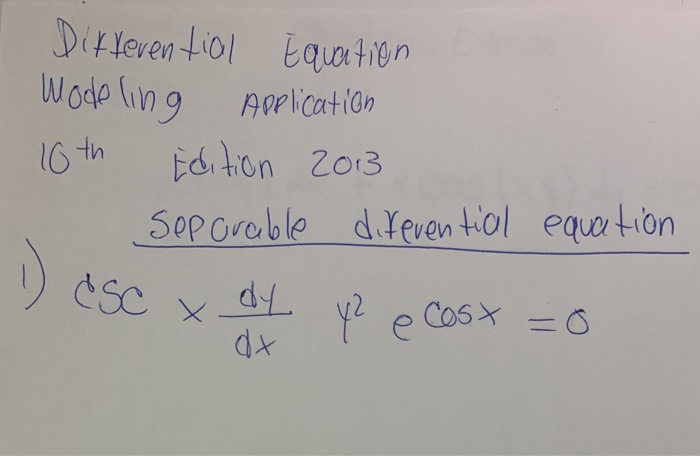 Differential Equation
Modeling Application
10th Edition 2013
Separable diferential equation
1) csc x dy/dx y² e cosx = 0